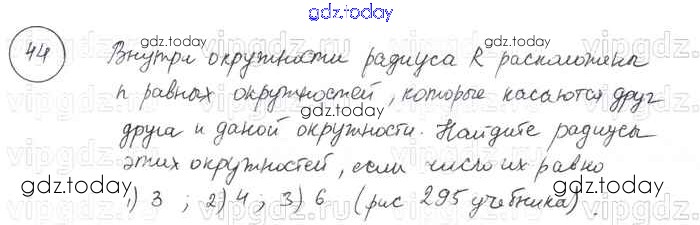 gdz.today
44 Внутри окружности радиуса R расположены
gdz.today
n равных окружностей, которые касаются друг
gdz.today
друга и даной окружности. Найдите радиусы
этих окружностей, если число их равно
gdz.today gdz.today gdz.today
1) 3 ; 2) 4 ; 3) 6 (рис 295 учебника).